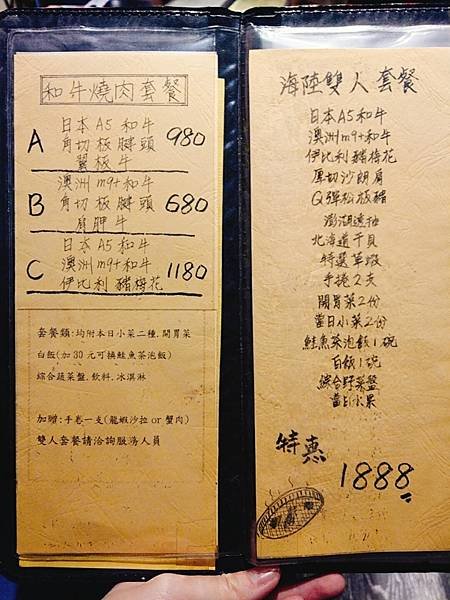 和牛燒肉套餐
A
日本A5和牛
角切板腱頭
翼板牛
980
B
澳洲m9+和牛
角切板腱頭
肩胛牛
680
C
日本A5和牛
澳洲m9+和牛
伊比利豬梅花
1180
套餐類:均附本日小菜二種.開胃菜
白飯(加30元可換鮭魚茶泡飯)
綜合蔬菜盤.飲料.冰淇淋
加贈:手卷一支(龍蝦沙拉or蟹肉)
雙人套餐請洽詢服務人員
海陸雙人套餐
日本A5和牛
澳洲m9+和牛
伊比利豬梅花
厚切沙朗肩
Q彈松板豬
澎湖透抽
北海道干貝
特選草蝦
手捲2支
開胃菜2份
當日小菜2份
鮭魚茶泡飯1碗
白飯1碗
綜合野菜盤
當日水果
特惠
1888